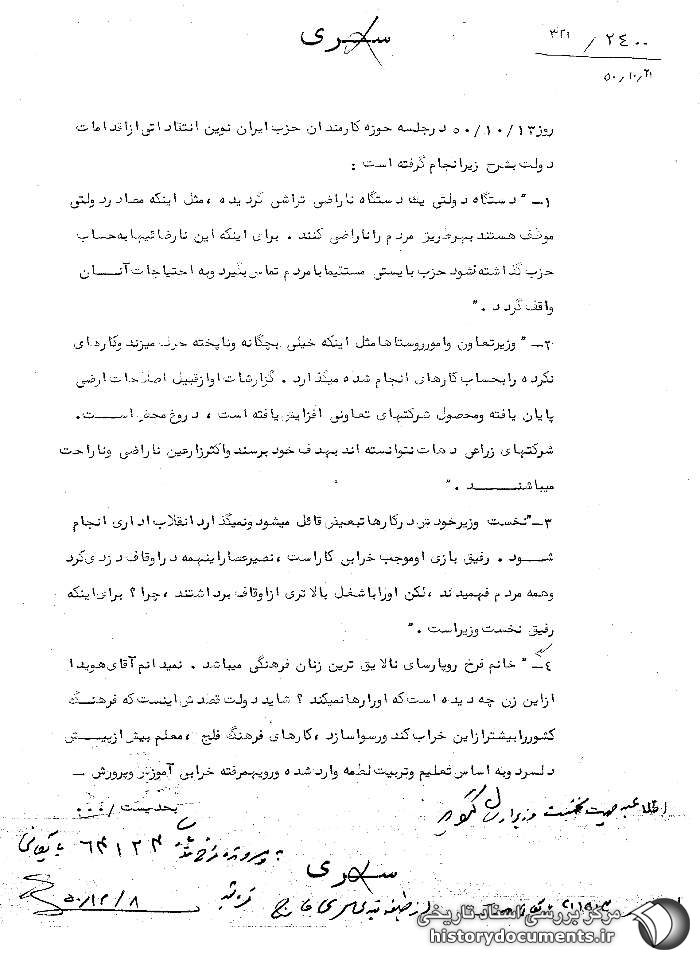 سری
۳۲۱ / ۲۴۰۰
۵۰/۱۰/۲۱
روز ۵۰/۱۰/۱۳ در جلسه حوزه کارمندان حزب ایران نوین انتقاداتی از اقدامات
دولت بشرح زیر انجام گرفته است :
۱ــ " دستگاه دولتی یك دستگاه ناراضی تراشی گردیده ، مثل اینکه مصادر دولتی
موظف هستند بهر طریق مردم را ناراضی کنند . برای اینکه این نارضائیها به حساب
حزب گذاشته نشود حزب بایستی مستقیما با مردم تماس بگیرد و به احتیاجات آنــــان
واقف گردد . "
۲ــ " وزیر تعاون و امور روستاها مثل اینکه خیلی بچگانه و ناپخته حرف میزند و کارهای
نکرده را بحساب کارهای انجام شده میگذارد . گزارشات او از قبیل اصلاحات ارضی
پایان یافته و محصول شرکتهای تعاونی افزایش یافته است ، دروغ محض اســـت.
شرکتهای زراعی دهات نتوانسته اند بهدف خود برسند و اکثر زارعین ناراضی و ناراحت
میباشنـــــد . "
۳ــ "نخست وزیر خودش در کارها تبعیض قائل میشود و نمیگذارد انقلاب اداری انجام
شـــود . رفیق بازی او موجب خرابی کار است ، نصیر عصار اینهمه در اوقاف دزدی کرد
و همه مردم فهمیدند ، لکن او را با شغل بالاتری از اوقاف برداشتند ، چرا ؟ برای اینکه
رفیق نخست وزیر است . "
۴ــ " خانم فرخ رو پارسای نالایق ترین زنان فرهنگی میباشد . نمیدانم آقای هویدا
از این زن چه دیده است که او را رها نمیکند ؟ شاید دولت قصدش اینست که فرهنــگ
کشور را بیشتر از این خراب کند و رسوا سازد ، کارهای فرهنگ فلج ، معلم بیش از پیــش
دلسرد و به اساس تعلیم و تربیت لطمه وارد شده و رویهمرفته خرابی آموزش و پرورش ــ
بحدیست / ۰۰۰
نخست وزیر
به پرونده ۶۴۱۲۳ بایگانی
سری
۵۰/۱۲/۸
مرکز بررسی اسناد تاریخی
historydocuments.ir